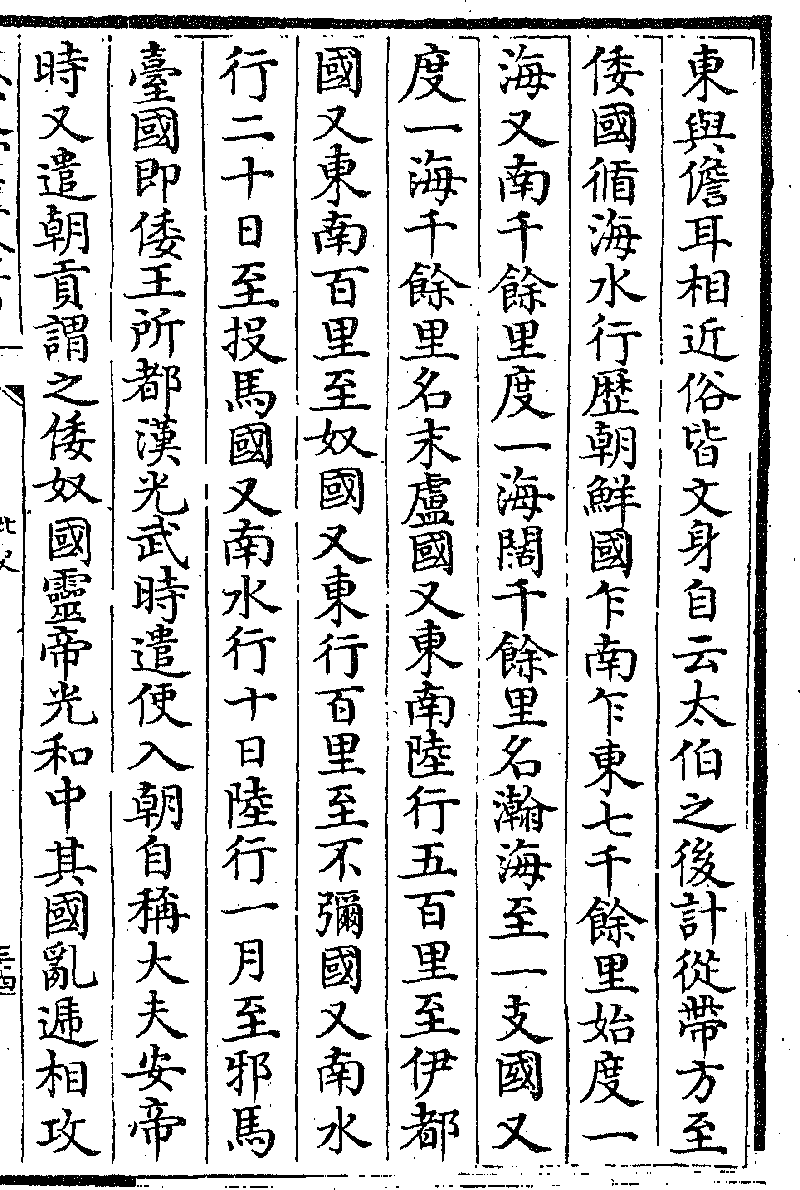 東與儋耳相近俗皆文身自云太伯之後計從帶方至
倭國循海水行歷朝鮮國乍南乍東七千餘里始度一
海又南千餘里度一海闊千餘里名瀚海至一支國又
度一海千餘里名末盧國又東南陸行五百里至伊都
國又東南百里至奴國又東行百里至不彌國又南水
行二十日至投馬國又南水行十日陸行一月至邪馬
臺國即倭王所都漢光武時遣使入朝自稱大夫安帝
時又遣朝貢謂之倭奴國靈帝光和中其國亂遞相攻